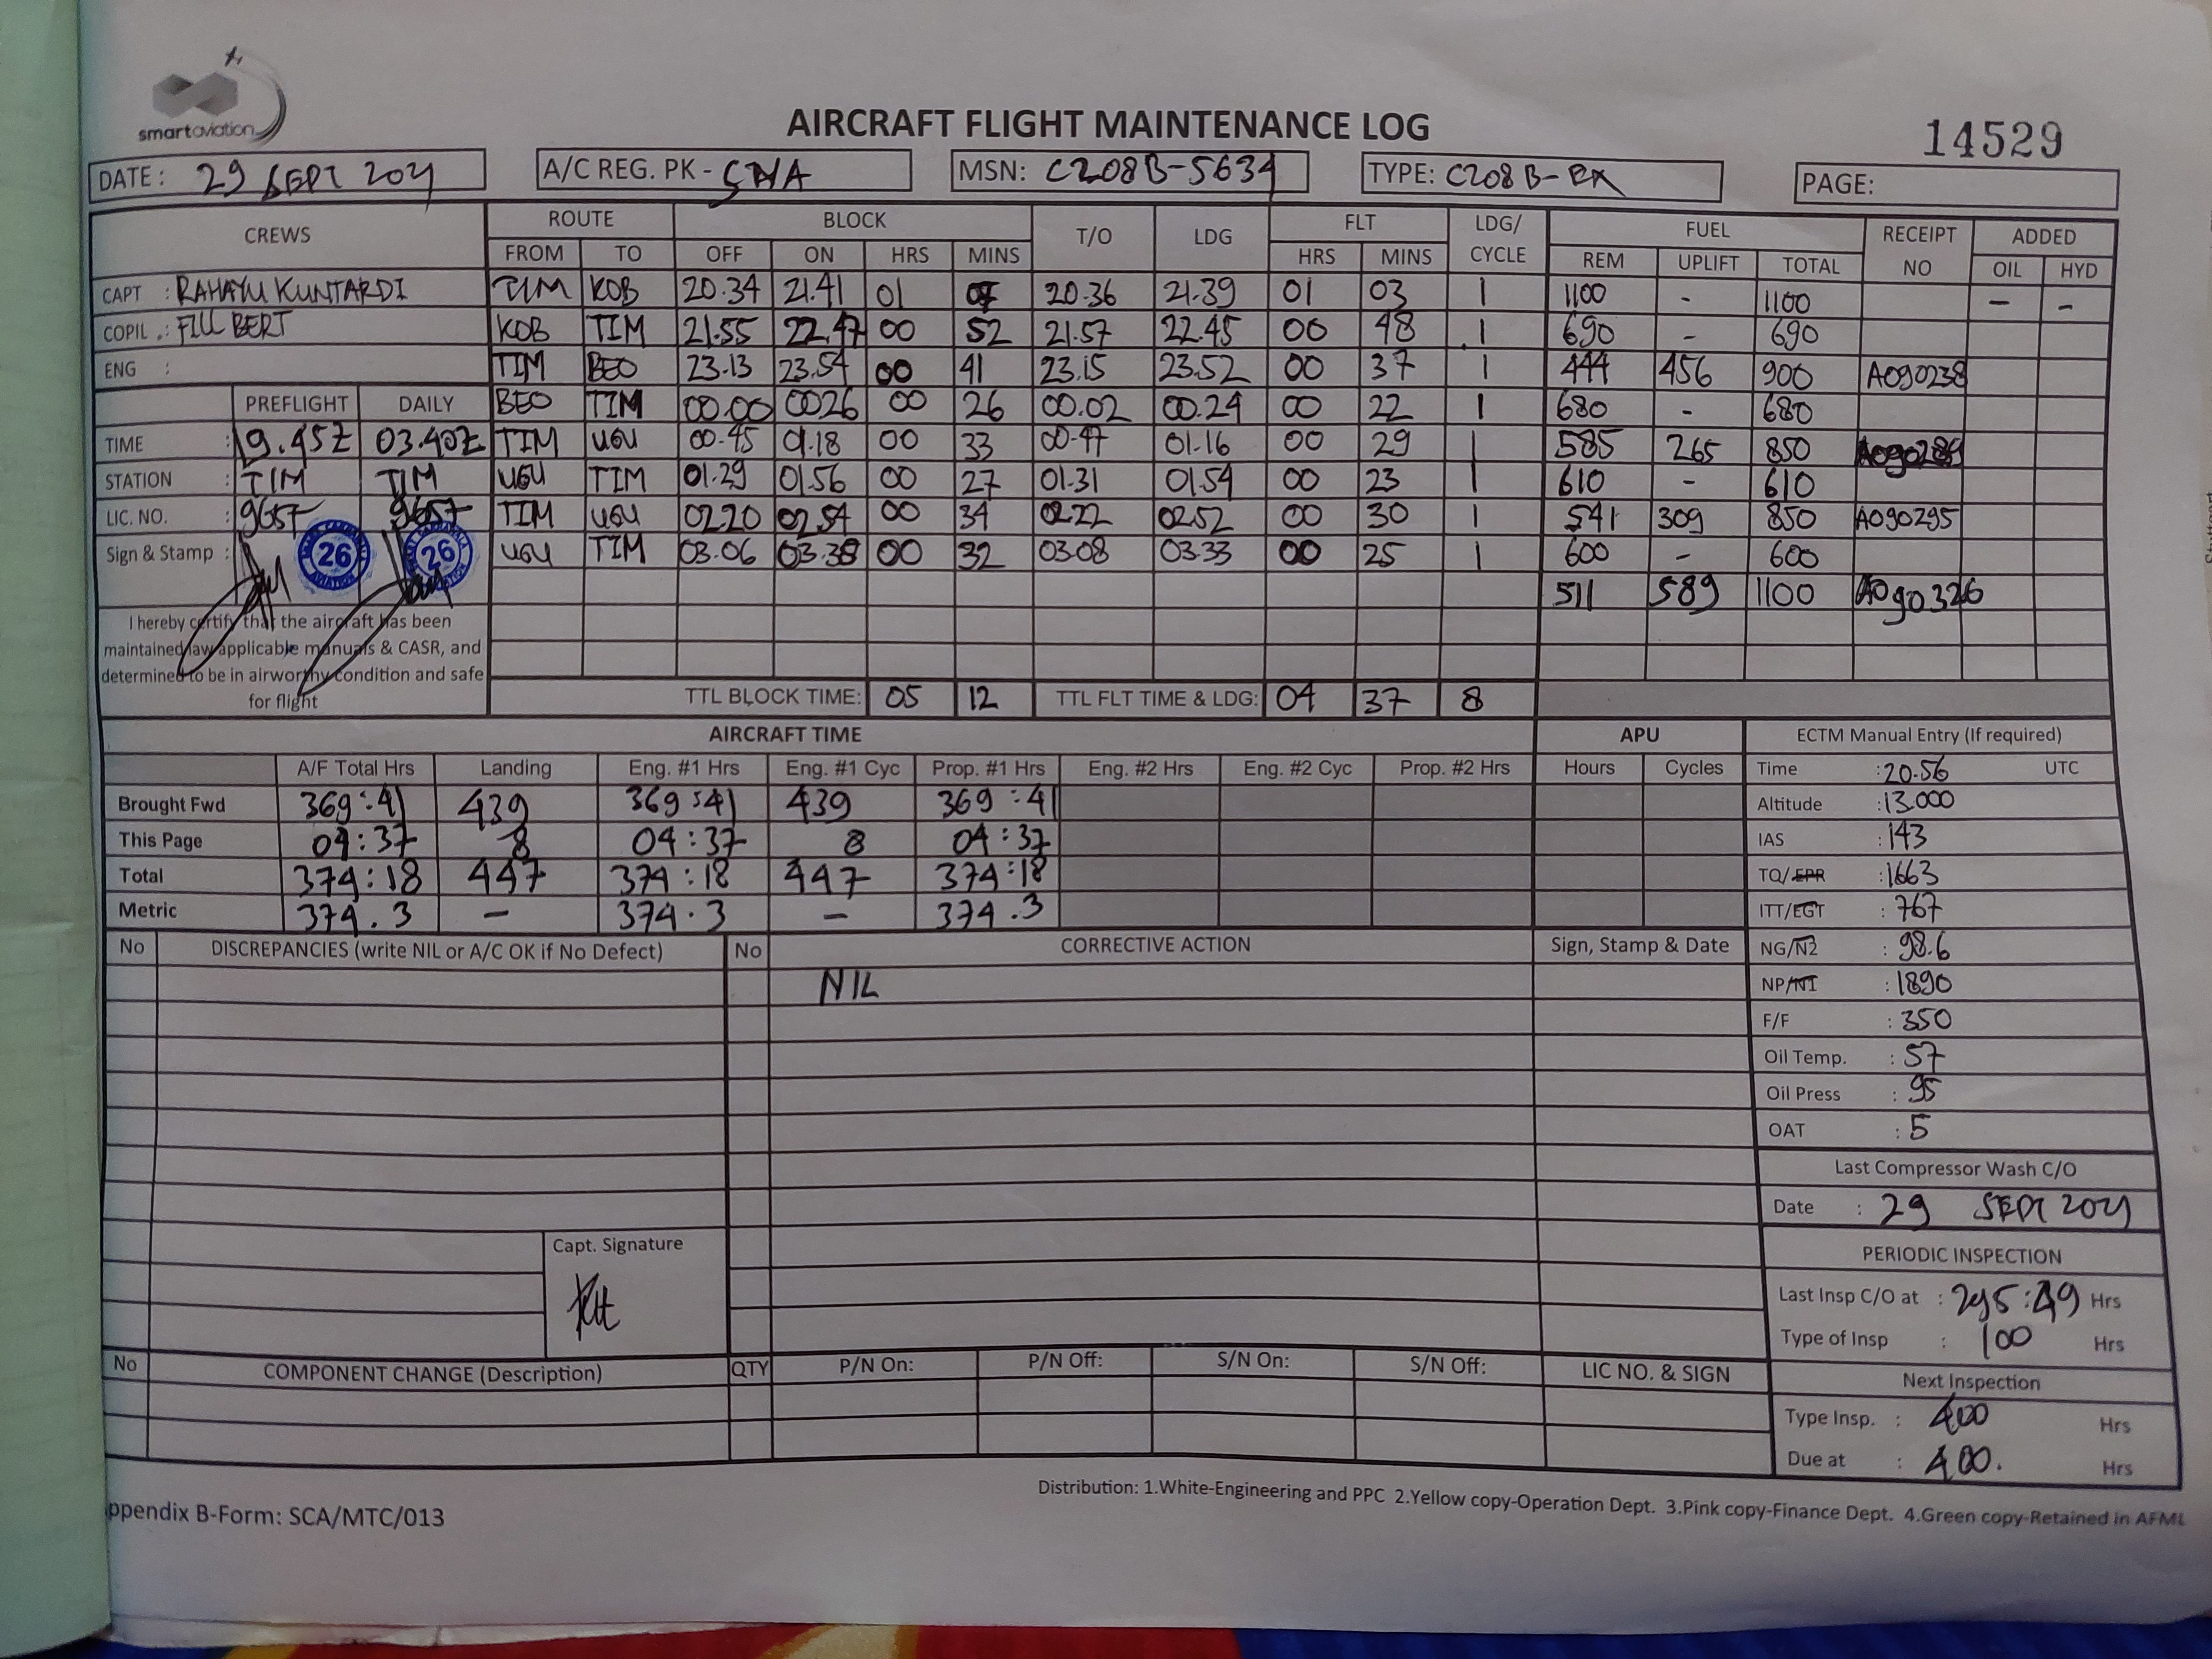 smartaviation
AIRCRAFT FLIGHT MAINTENANCE LOG
14529
DATE: 29 SEPT 2021
A/C REG. PK - SNA
MSN: C208B-5634
TYPE: C208B-EX
PAGE:
CREWS ROUTE BLOCK T/O LDG FLT LDG/CYCLE FUEL RECEIPT NO ADDED
FROM TO OFF ON HRS MINS HRS MINS REM UPLIFT TOTAL OIL HYD
CAPT : RAHAYU KUNTARDI TIM KOB 20.34 21.41 01 07 20.36 21.39 01 03 1 1100 - 1100 - -
COPIL .: FILL BERT KOB TIM 21.55 22.47 00 52 21.57 22.45 00 48 1 690 - 690
ENG : TIM BEO 23.13 23.54 00 41 23.15 23.52 00 37 1 444 456 900 A090238
PREFLIGHT DAILY BEO TIM 00.00 0026 00 26 00.02 00.24 00 22 1 680 - 680
TIME : 19.45Z 03.40Z TIM UGU 00.45 01.18 00 33 00.47 01.16 00 29 1 585 265 850
STATION : TIM TIM UGU TIM 01.29 01.56 00 27 01.31 01.54 00 23 1 610 - 610
LIC. NO. : 9657 9657 TIM UGU 02.20 02.54 00 34 02.22 02.52 00 30 1 541 309 850 A090295
Sign & Stamp : 26 26 UGU TIM 03.06 03.38 00 32 03.08 03.33 00 25 1 600 - 600
511 589 1100 A090326
I hereby certify that the aircraft has been
maintained iaw applicable manuals & CASR, and
determined to be in airworthy condition and safe
for flight
TTL BLOCK TIME: 05 12 TTL FLT TIME & LDG: 04 37 8
AIRCRAFT TIME APU
A/F Total Hrs Landing Eng. #1 Hrs Eng. #1 Cyc Prop. #1 Hrs Eng. #2 Hrs Eng. #2 Cyc Prop. #2 Hrs Hours Cycles
Brought Fwd 369:41 439 369:41 439 369:41
This Page 04:37 8 04:37 8 04:37
Total 374:18 447 374:18 447 374:18
Metric 374.3 - 374.3 - 374.3
ECTM Manual Entry (If required)
Time : 20.56 UTC
Altitude : 13.000
IAS : 143
TQ/EPR : 1663
ITT/EGT : 767
NG/N2 : 98.6
NP/N1 : 1890
F/F : 350
Oil Temp. : 57
Oil Press : 95
OAT : 5
Last Compressor Wash C/O
Date : 29 SEPT 2021
PERIODIC INSPECTION
Last Insp C/O at : 295:49 Hrs
Type of Insp : 100 Hrs
Next Inspection
Type Insp. : 400 Hrs
Due at : 400. Hrs
No DISCREPANCIES (write NIL or A/C OK if No Defect) No CORRECTIVE ACTION Sign, Stamp & Date
NIL
Capt. Signature
No COMPONENT CHANGE (Description) QTY P/N On: P/N Off: S/N On: S/N Off: LIC NO. & SIGN
Distribution: 1.White-Engineering and PPC 2.Yellow copy-Operation Dept. 3.Pink copy-Finance Dept. 4.Green copy-Retained in AFML
ppendix B-Form: SCA/MTC/013